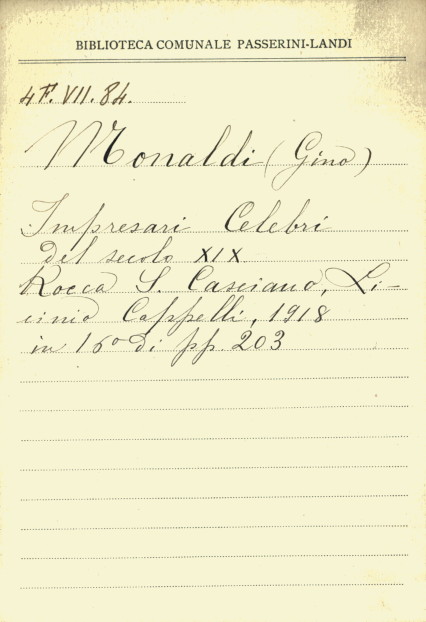 BIBLIOTECA COMUNALE PASSERINI-LANDI
4F. VII. 84.
Monaldi (Gino)
Impresari Celebri
del secolo XIX
Rocca S. Casciano, Li-
cinio Cappelli, 1918
in 16º di pp. 203